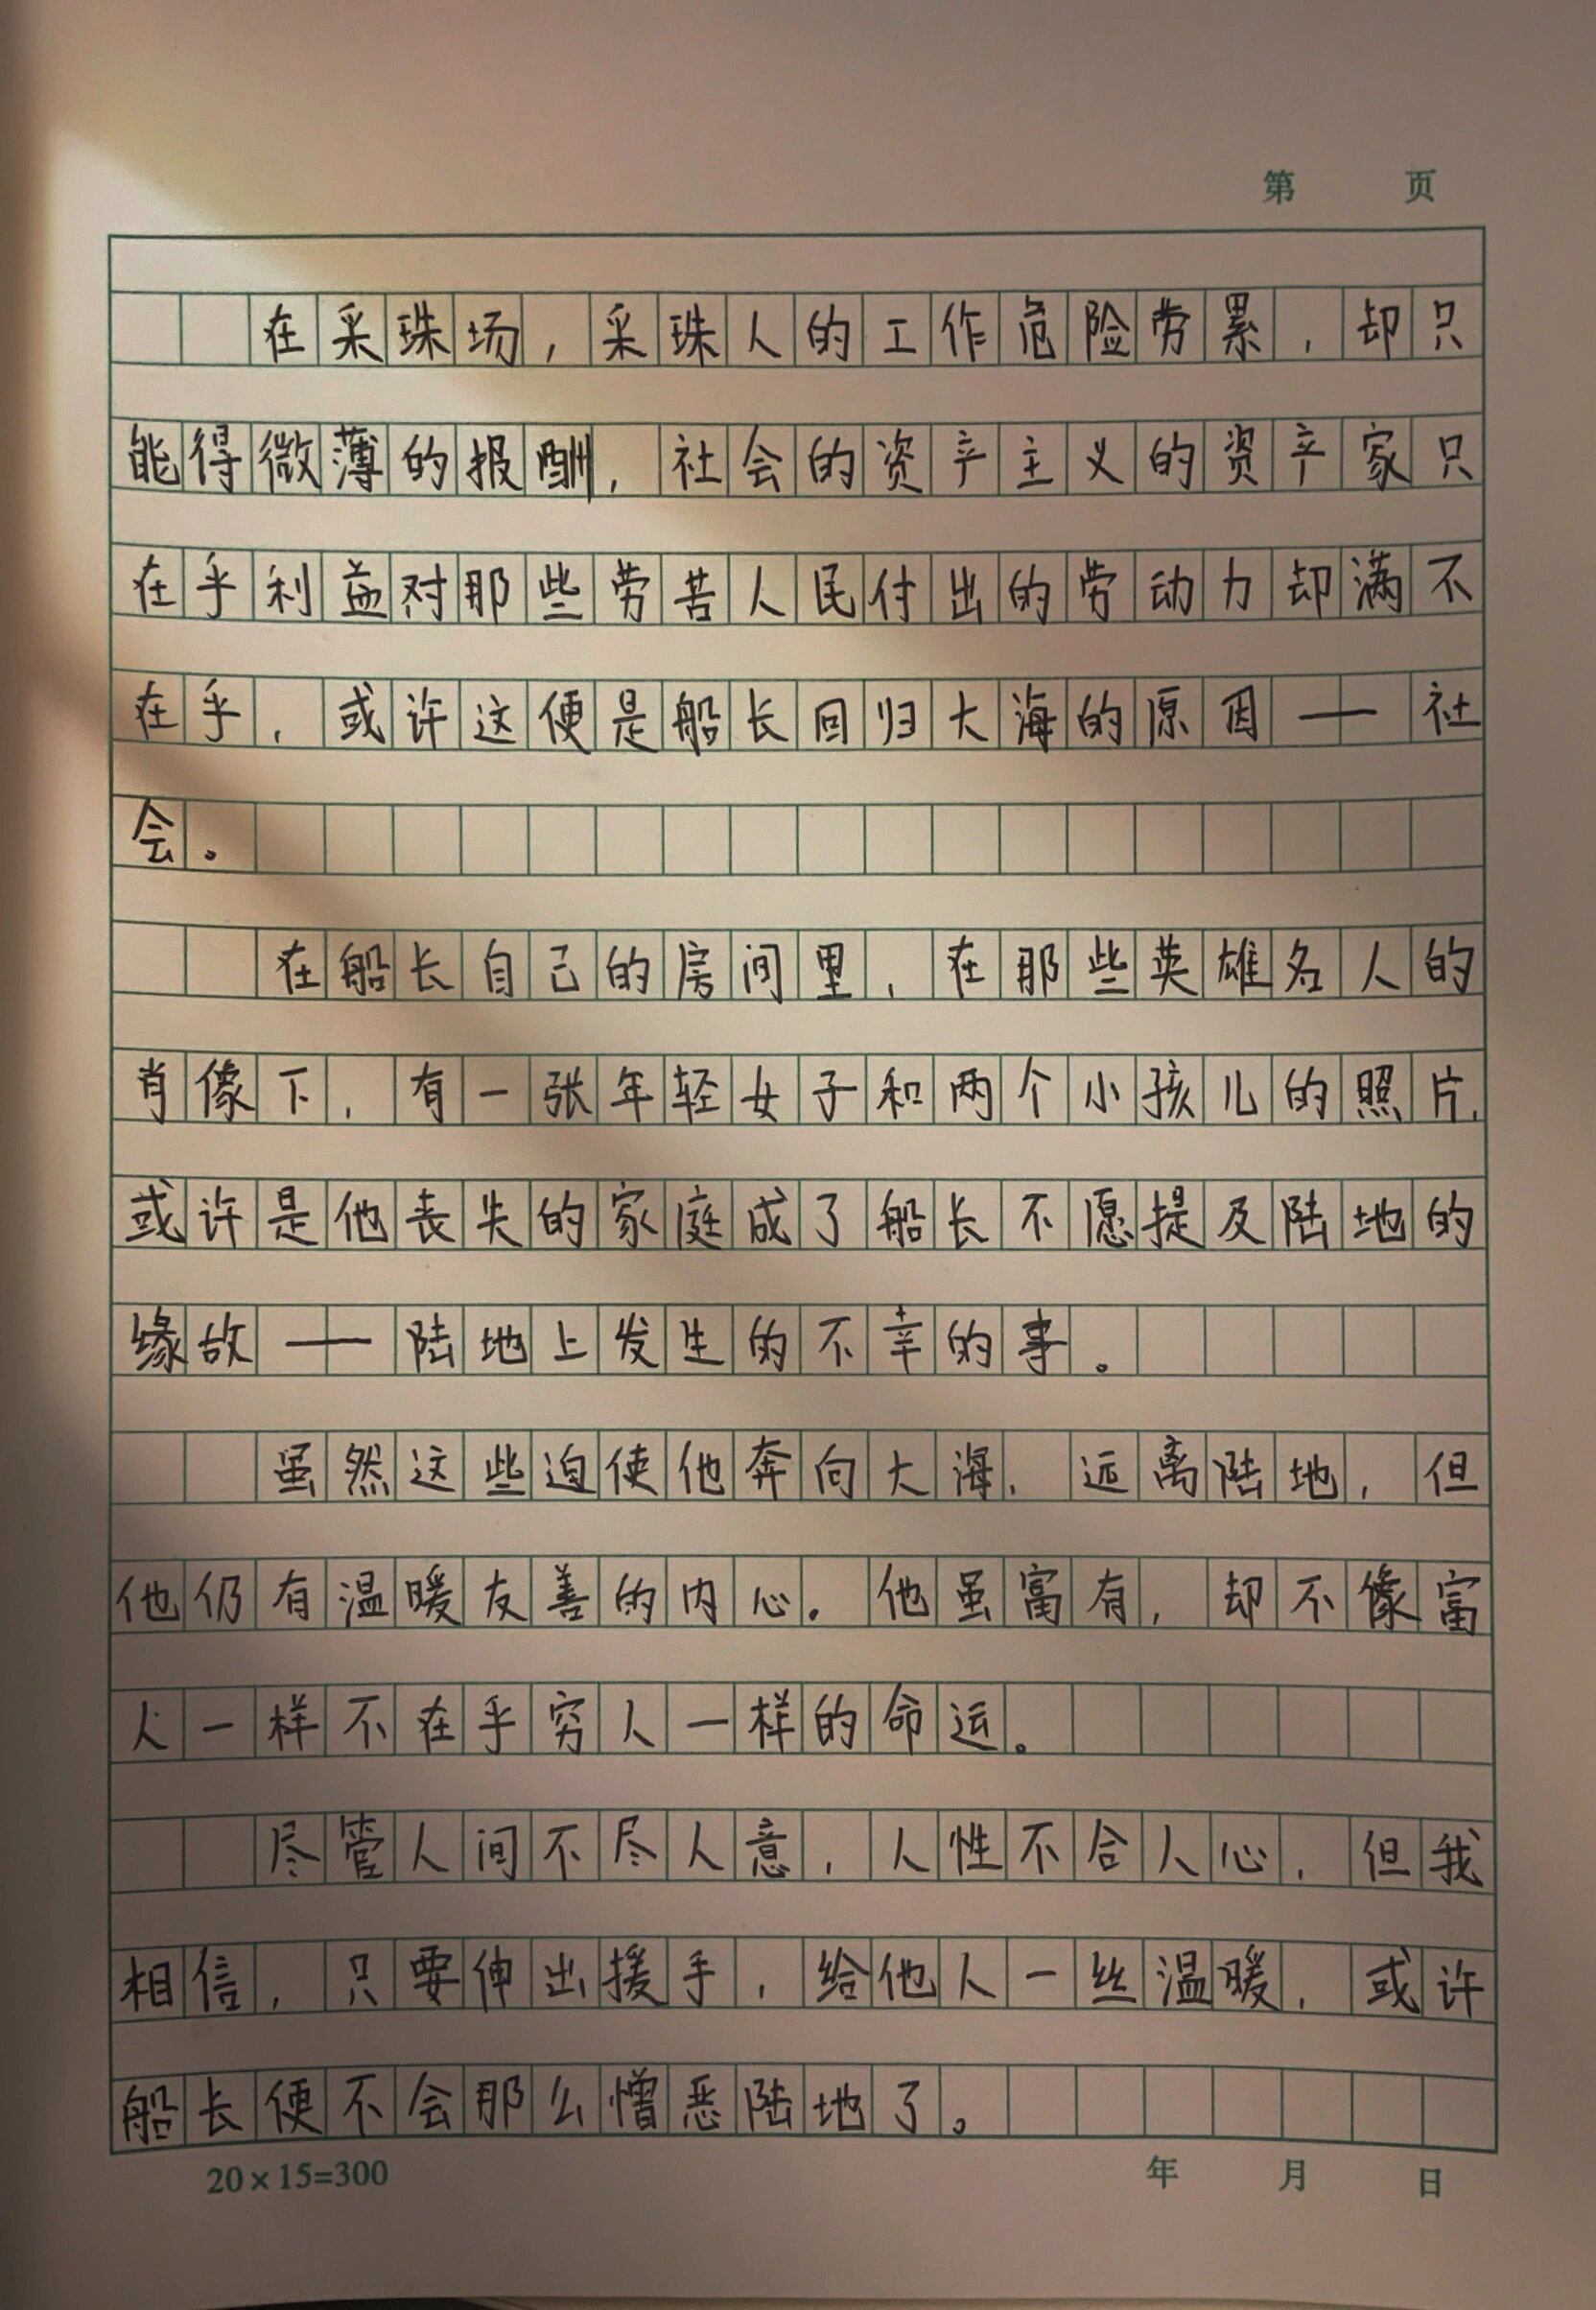 第 页
在采珠场，采珠人的工作危险劳累，却只
能得微薄的报酬，社会的资产主义的资产家只
在乎利益对那些劳苦人民付出的劳动力却满不
在乎，或许这便是船长回归大海的原因——社
会。
在船长自己的房间里，在那些英雄名人的
肖像下，有一张年轻女子和两个小孩儿的照片，
或许是他丧失的家庭成了船长不愿提及陆地的
缘故——陆地上发生的不幸的事。
虽然这些迫使他奔向大海，远离陆地，但
他仍有温暖友善的内心。他虽富有，却不像富
人一样不在乎穷人一样的命运。
尽管人间不尽人意，人性不合人心，但我
相信，只要伸出援手，给他人一丝温暖，或许
船长便不会那么憎恶陆地了。
20×15=300 年 月 日